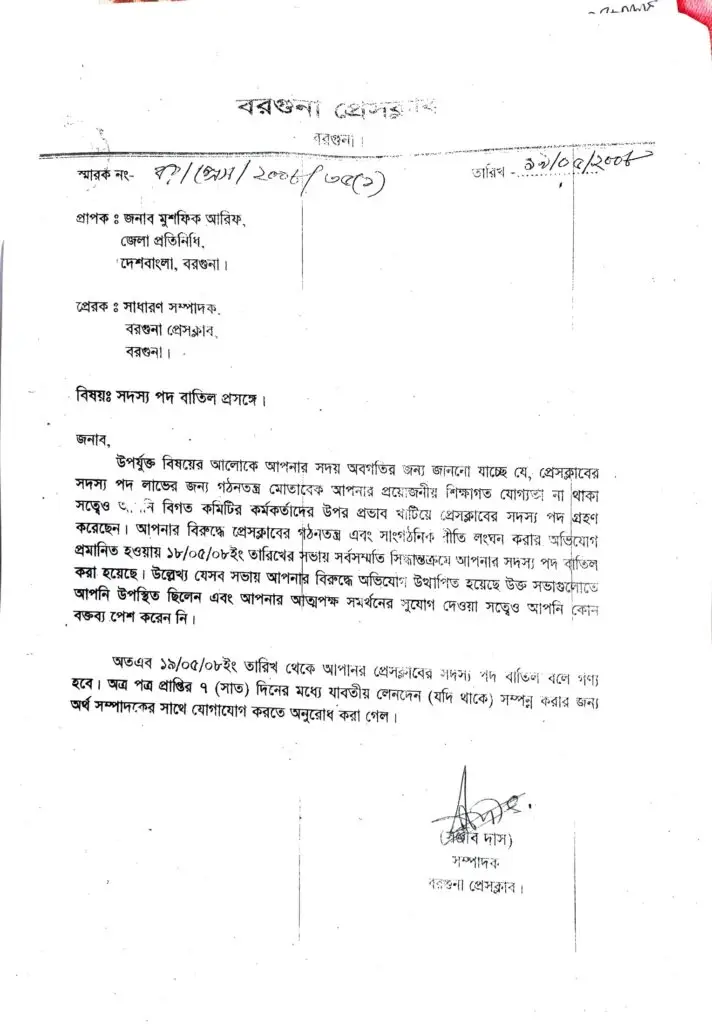 বরগুনা প্রেসক্লাব
বরগুনা।
স্মারক নং- /প্রেস/২০০৮/৩৫(১)
তারিখ - ১৯/০৫/২০০৮
প্রাপক ঃ জনাব মুশফিক আরিফ,
জেলা প্রতিনিধি,
দেশবাংলা, বরগুনা।
প্রেরক ঃ সাধারণ সম্পাদক,
বরগুনা প্রেসক্লাব,
বরগুনা।
বিষয়ঃ সদস্য পদ বাতিল প্রসঙ্গে।
জনাব,
উপর্যুক্ত বিষয়ের আলোকে আপনার সদয় অবগতির জন্য জানানো যাচ্ছে যে, প্রেসক্লাবের
সদস্য পদ লাভের জন্য গঠনতন্ত্র মোতাবেক আপনার প্রয়োজনীয় শিক্ষাগত যোগ্যতা না থাকা
সত্ত্বেও বিগত কমিটির কর্মকর্তাদের উপর প্রভাব খাটিয়ে প্রেসক্লাবের সদস্য পদ গ্রহণ
করেছেন। আপনার বিরুদ্ধে প্রেসক্লাবের গঠনতন্ত্র এবং সাংগঠনিক রীতি লংঘন করার অভিযোগ
প্রমানিত হওয়ায় ১৮/০৫/০৮ইং তারিখের সভায় সর্বসম্মতি সিদ্ধান্তক্রমে আপনার সদস্য পদ বাতিল
করা হয়েছে। উল্লেখ্য যেসব সভায় আপনার বিরুদ্ধে অভিযোগ উত্থাপিত হয়েছে উক্ত সভাগুলোতে
আপনি উপস্থিত ছিলেন এবং আপনার আত্মপক্ষ সমর্থনের সুযোগ দেওয়া সত্ত্বেও আপনি কোন
বক্তব্য পেশ করেন নি।
অতএব ১৯/০৫/০৮ইং তারিখ থেকে আপানর প্রেসক্লাবের সদস্য পদ বাতিল বলে গণ্য
হবে। অত্র পত্র প্রাপ্তির ৭ (সাত) দিনের মধ্যে যাবতীয় লেনদেন (যদি থাকে) সম্পন্ন করার জন্য
অর্থ সম্পাদকের সাথে যোগাযোগ করতে অনুরোধ করা গেল।
দাস)
সম্পাদক
বরগুনা প্রেসক্লাব।